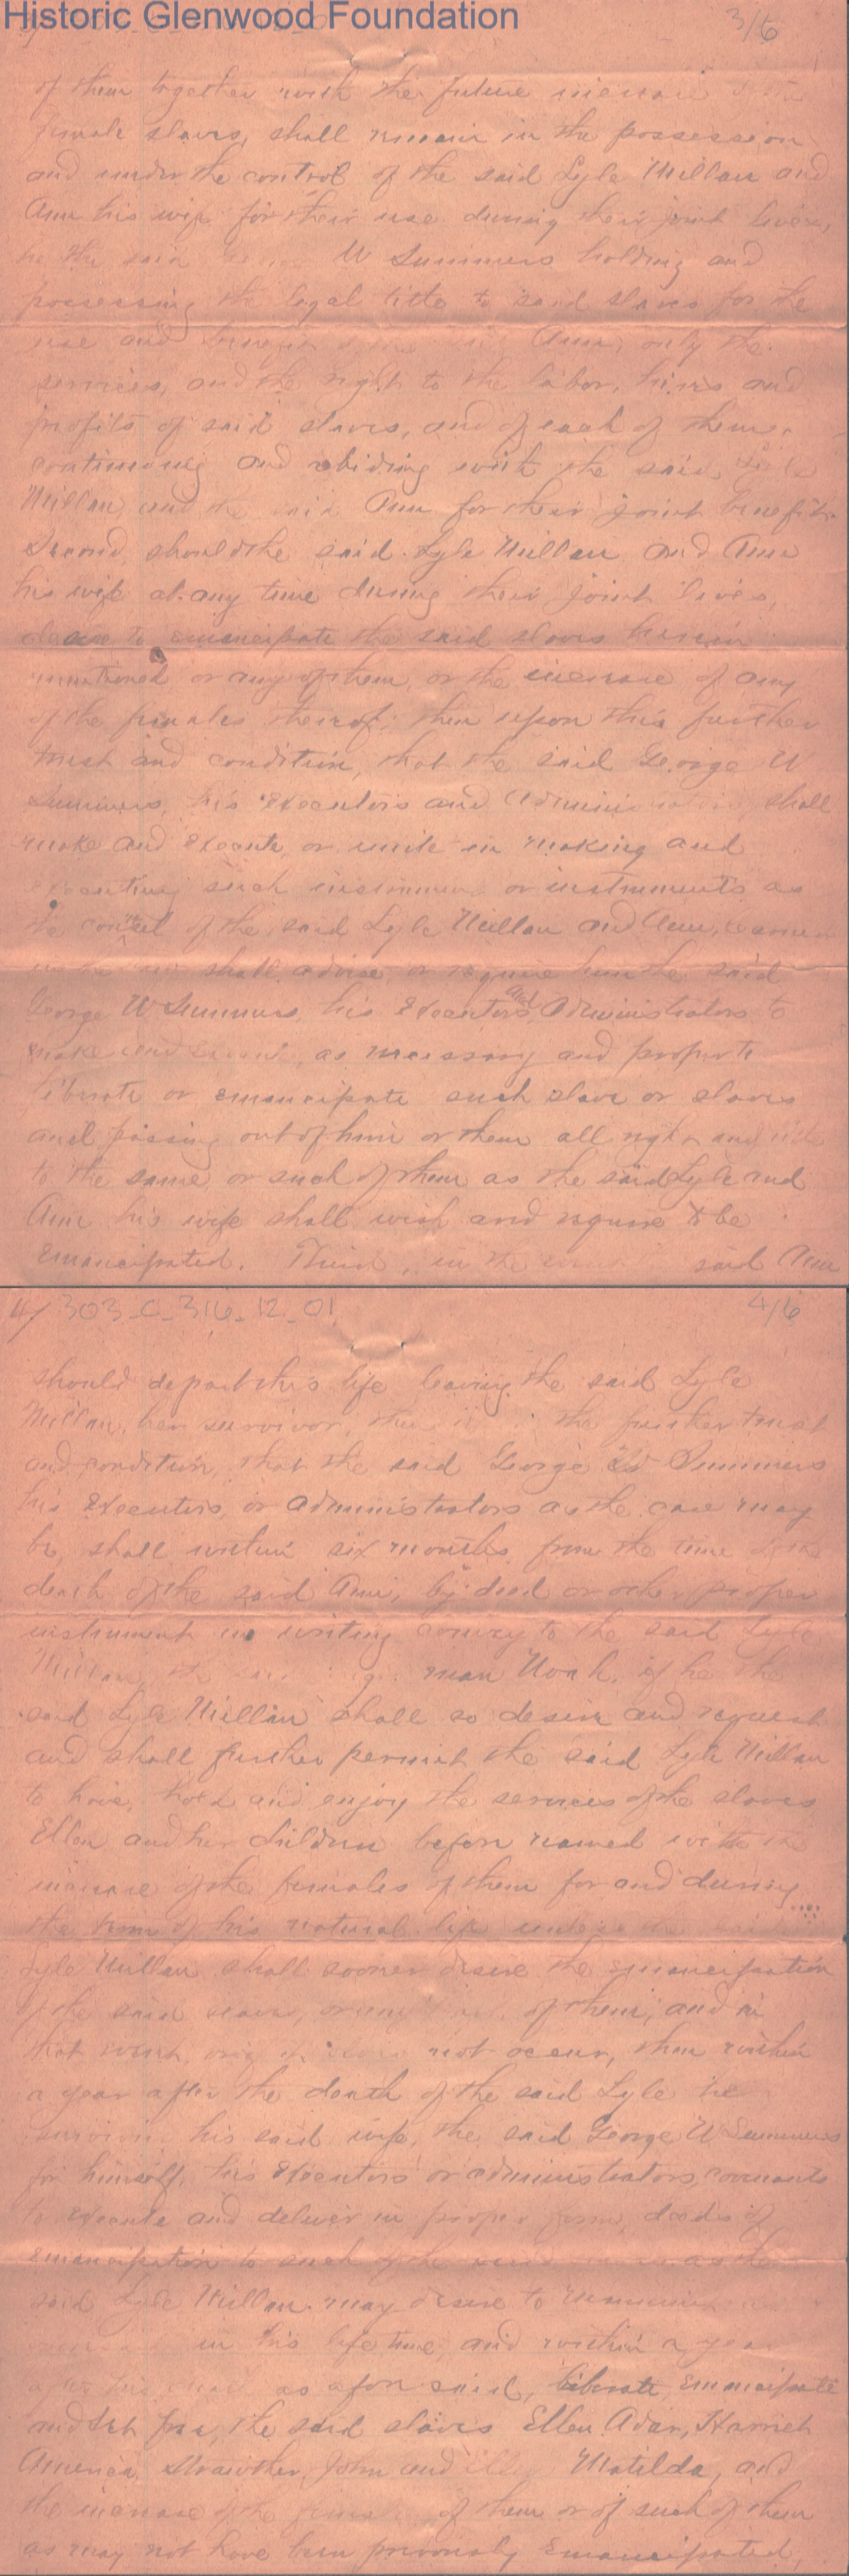 Historic Glenwood Foundation
3/6
of them together with the future increase
female slaves, shall remain in the possession
and under the control of the said Lyle Millan and
Ann his wife for their use during their joint lives,
he the said W Summers holding and
possessing the legal title to said slaves for the
use and Ann, only the
services, and the right to the labor, hires and
profits of said slaves, and of each of them
continuing and abiding with the said Lyle
Millan, and the said Ann for their joint benefit.
Second, should the said Lyle Millan and Ann
his wife at any time during their joint lives,
desire to emancipate the said slaves herein
mentioned or any of them, or the increase of any
of the females thereof; then upon this further
trust and condition, that the said George W
Summers, his executors and administrators shall
make and execute, or unite in making and
executing such instrument or instruments as
the counsel of the said Lyle Millan and Ann, learned
in the law shall advise, or require him the said
George W Summers, his Executors, and Administrators to
make and execute, as necessary and proper to
liberate or emancipate such slave or slaves
and passing out of him or them all right and title
to the same, or such of them as the said Lyle and
Ann his wife shall wish and require to be
emancipated. Third, in the said Ann
4/ 303_C_316_12_01
4/6
should depart this life leaving the said Lyle
Millan, her survivor, then the further trust
and condition, that the said George W Summers
his Executors, or administrators as the case may
be, shall within six months from the time of the
death of the said Ann, by deed or other proper
instrument in writing convey to the said Lyle
Millan, the man Noah, if he the
said Lyle Millan shall so desire and request
and shall further permit the said Lyle Millan
to have, hold and enjoy the services of the slaves
Ellen and her children before named with the
increase of the females of them for and during
the term of his natural life unless the said
Lyle Millan shall sooner desire the emancipation
of the said slaves, or any of them; and in
that event, not occur, then within
a year after the death of the said Lyle he
surviving his said wife, the said George W Summers
for himself, his Executors or administrators, covenants
to execute and deliver in proper form, deeds of
emancipation to such of the said as the
said Lyle Millan may desire to
in his life time, and within a year
after his death as afore said, liberate, Emancipate
and set free, the said slaves Ellen, Adan, Harriet
America, Strawther, John and Matilda, and
the increase of the females of them or of such of them
as may not have been previously Emancipated,